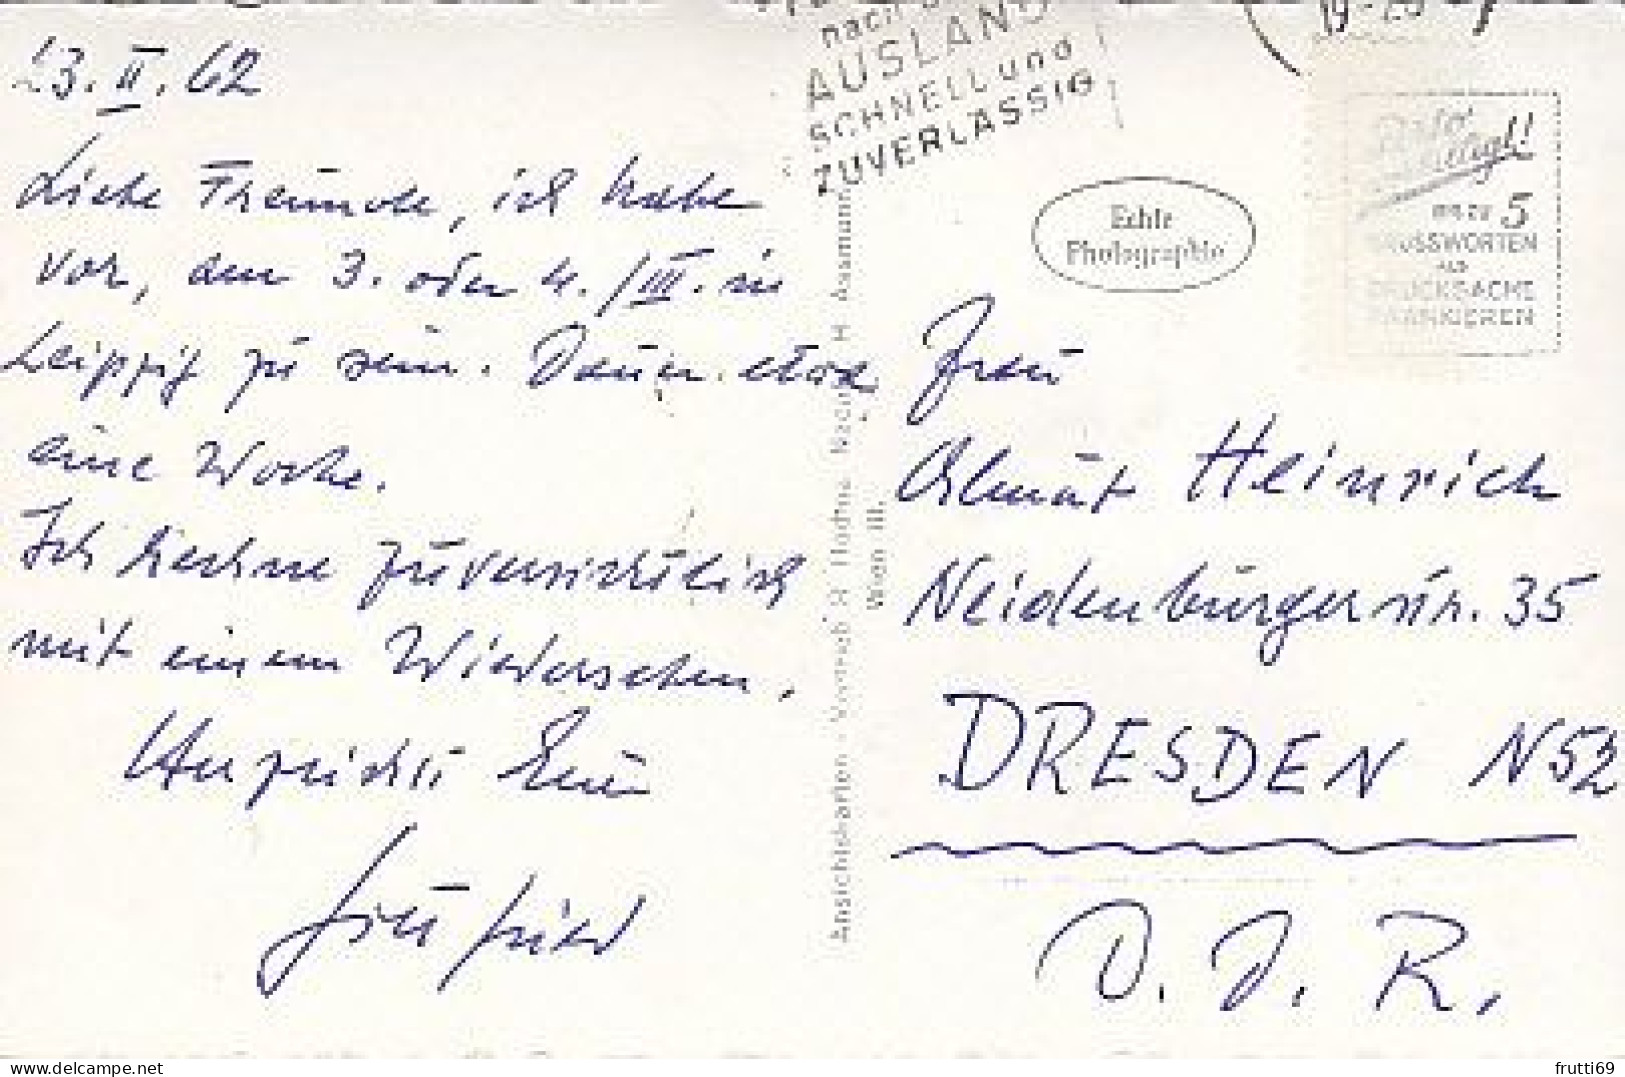 23. II. 62
Liebe Freunde, ich habe
vor, am 3. oder 4. /III. in
Leipzig zu sein. Dauer etwa
eine Woche.
Ich rechne zuversichtlich
mit einem Wiedersehen.
Herzlichst Euer
nach
AUSLAND
SCHNELL und
ZUVERLÄSSIG
19-20
Echte
Photographie
BIS ZU 5
GRUSSWORTEN
ALS
DRUCKSACHE
FRANKIEREN
Ansichtskarten - Vertrieb
Wien III.
Frau
Almut Heinrich
Neidenburgerstr. 35
DRESDEN N52
D. D. R.
delcampe.net
frutti69